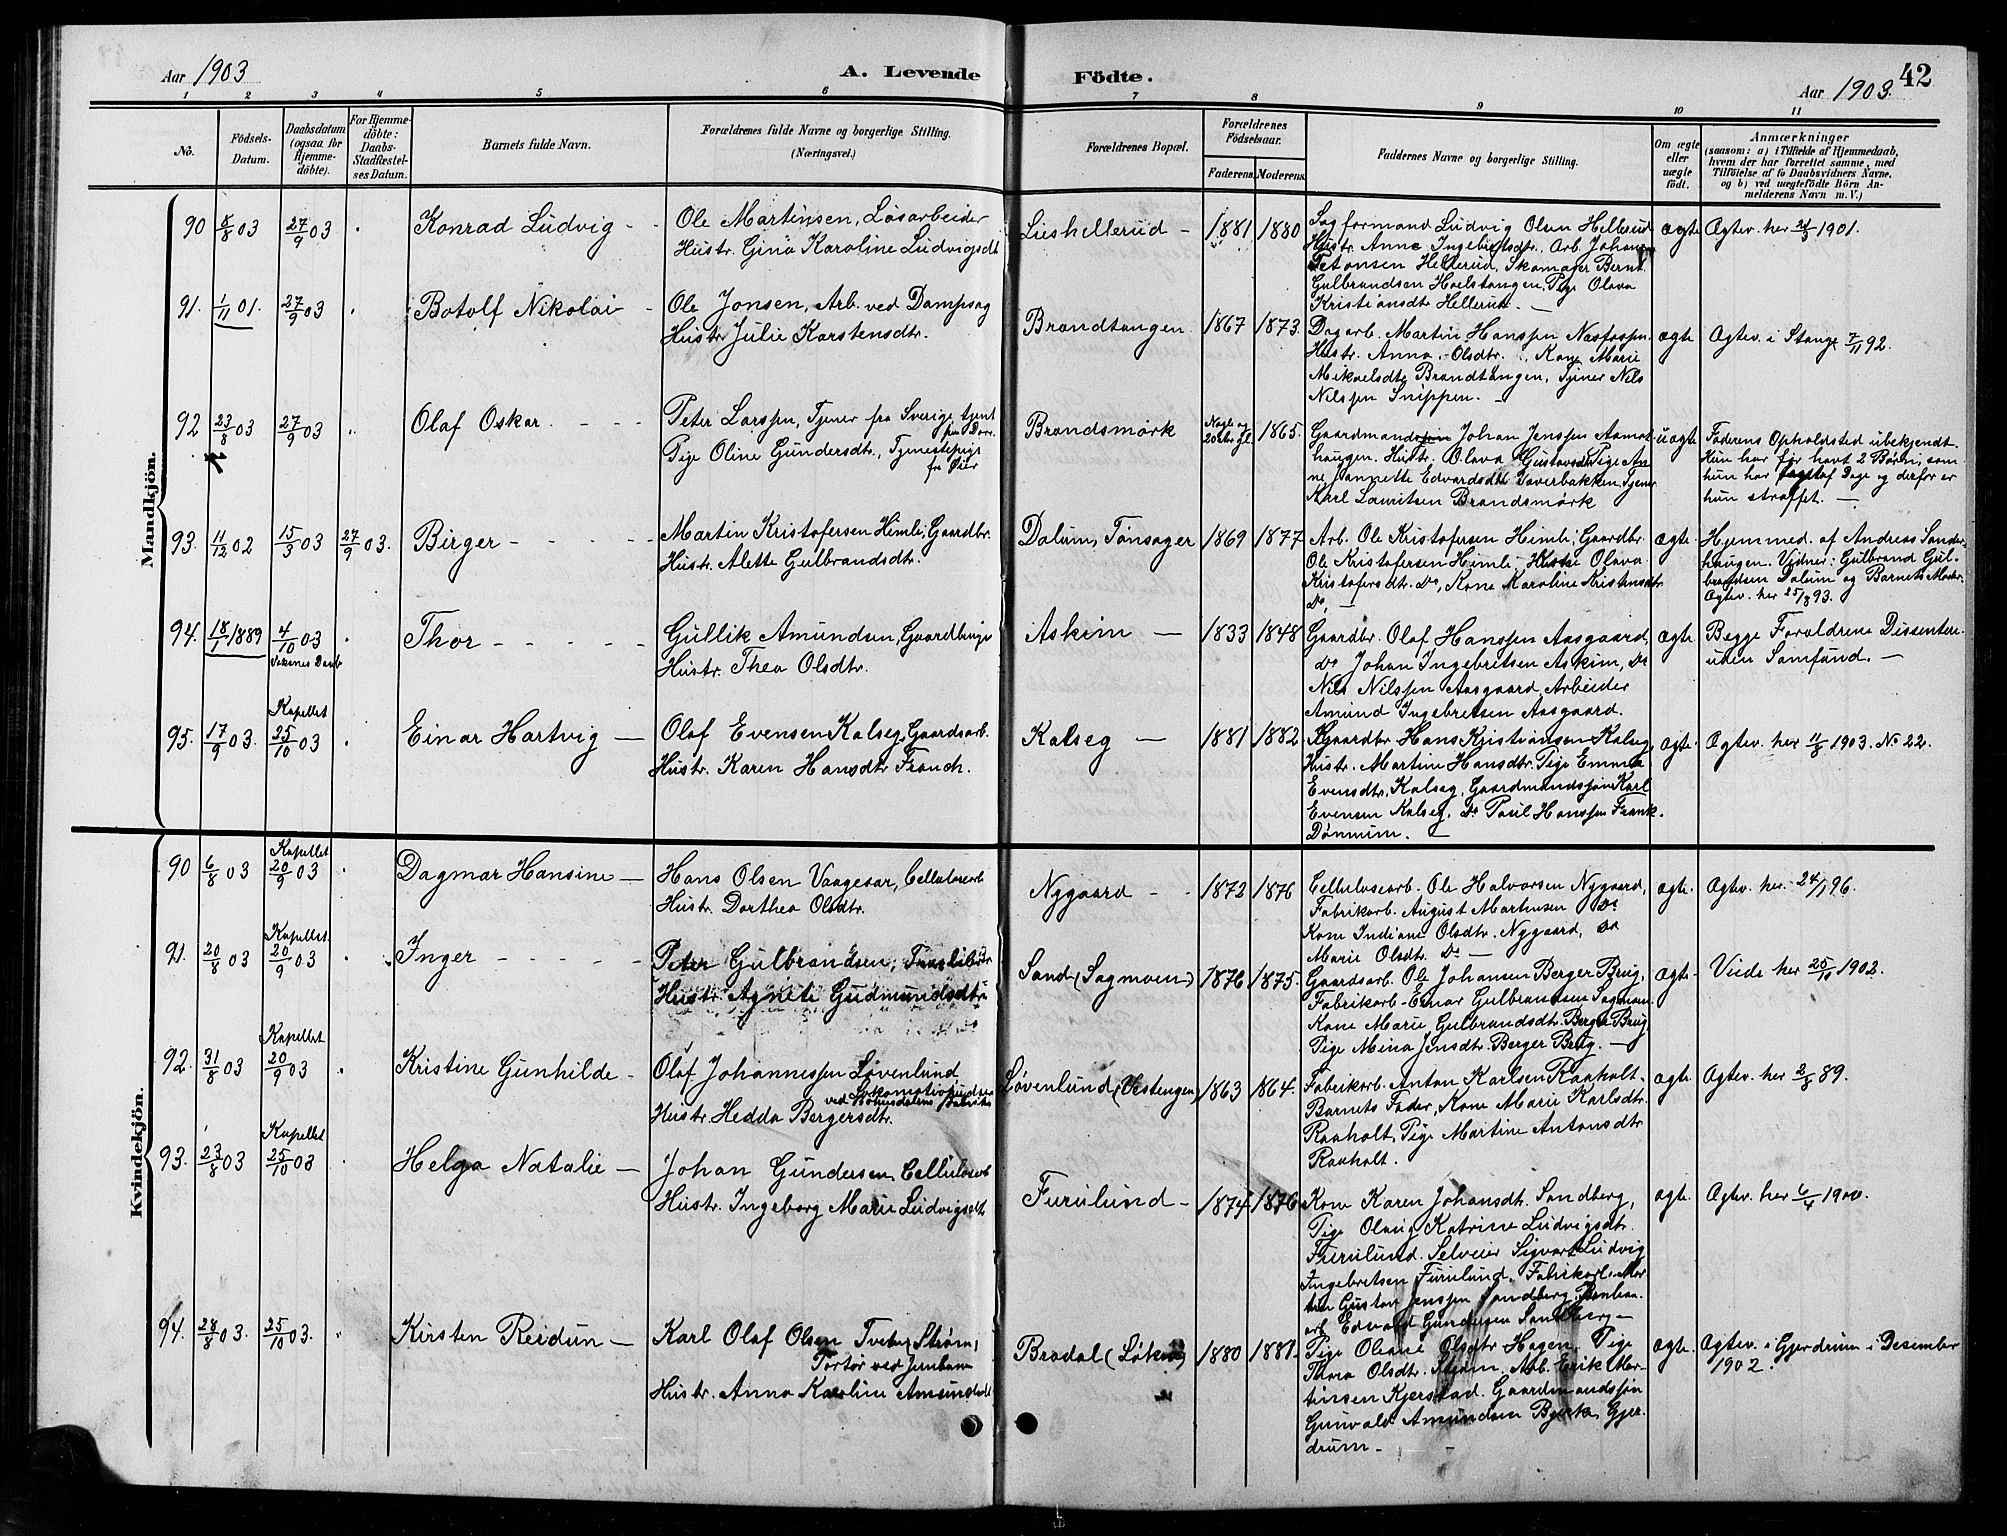 Aar 1903
A. Levende
Födte.
Aar 1903
42
1 2 3 4 5 6 7 8 9 10 11
No.
Födsels-
Datum.
Daabsdatum
(ogsaa for
Hjemme-
döbte).
For Hjemme-
döbte:
Daabs-
Stadfæstel-
ses Datum.
Barnets fulde Navn.
Forældrenes fulde Navne og borgerlige Stilling.
(Næringsvei.)
Forældrenes Bopæl.
Forældrenes
Födselsaar.
Faderens. Moderens.
Faddernes Navne og borgerlige Stilling.
Om ægte
eller
uægte
födt.
Anmærkninger
(saasom: a) i Tilfælde af Hjemmedaab,
hvem der har forrettet samme, med
Tilföielse af to Daabsvidners Navne,
og b) ved uægtefödte Börn An-
melderens Navn m. V.)
Mandkjön.
90 8/8 03 27/9 03 Konrad Ludvig
Ole Martinsen, Løsarbeider
Hustr. Gina Karoline Ludvigsdt
Lieshellerud 1881 1880
Sagformand Ludvig Olsen Hellerud
Hustr. Anne Ingebretsdtr. Arb. Johan
Hellerud, Skomager Bernt
Gulbrandsen Pige Olava
Kristiansdt Hellerud.
ægte Ægtev. her 1901.
91. 1/11 01. 27/9 03 Botolf Nikolai
Ole Jonsen, Arb. ved Dampsag
Hustr. Julie Karstensdtr.
Brandtangen 1867 1873.
Dagarb. Martin Hanssen
Hustr. Anna Olsdtr. Kone Marie
Mikaelsdtr Brandtangen, Tjener Nils
Nilssen Snippen.
ægte Ægtev. i Stange 7/11 92.
92 23/8 03 27/9 03 Olaf Oskar
Peter Larssen, Tjener fra Sverige tjent
Pige Oline Gundersdtr., Tjenestepige
fra Øier
Brandsmørk 1865.
Gaardmand Johan Jenssen
haugen. Hustr. Olava Gustavsdt Pige An-
ne Jannette Edvardsdt Tjener
Karl Lauritsen Brandsmørk
uægte Faderens Opholdsted ubekjendt.
Hun har før havt 2 Børn, som
hun har Dage og derfor er
hun straffet.
93. 11/12 02 15/3 03 27/9 03. Birger
Martin Kristofersen Himle, Gaardbr.
Hustr. Alette Gulbrandsdtr.
Dalum, Tønsager 1869 1877
Arb. Ole Kristofersen Himle, Gaardbr.
Ole Kristofersen Himle, Hustr Olava
Kristofersdt. Do, Kone Karoline Kristensdtr
Do,
ægte Hjemmed. af Andreas Sander-
haugen. Vidner: Gulbrand Gul-
brandsen Dalum og Barnets Moder.
Ægtev. her 93.
94. 18/1 1889 4/10 03 Thor
Gullik Amundsen, Gaardbruger
Hustr. Thea Olsdtr.
Askim 1833 1848
Gaardbr. Olaf Hanssen Aasgaard,
Do Johan Ingebretsen Askim, Do
Nils Nilssen Aasgaard, Arbeider
Amund Ingebretsen Aasgaard.
ægte Begge Forældrene Dissentere
uden Samfund.
95. 17/9 03. Kapellet 25/10 03 Einar Hartvig
Olaf Evensen Kalseg, Gaardsarb.
Hustr. Karen Hansdtr Franch.
Kalseg 1881 1882
Gaardbr Hans Kristiansen Kalseg,
Hustr. Martine Hansdtr. Pige Emma
Evensdtr, Kalseg, Gaardmandssøn Karl
Evensen Kalseg, Do Paul Hanssen Frank.
Dønnum.
ægte. Ægtev. her 11/8 1903. No 22.
Kvindekjön.
90 6/8 03 Kapellet 20/9 03 Dagmar Hansine
Hans Olsen Vaagesar, Cellulosearb
Hustr. Dorthea Olsdtr.
Nygaard 1872 1876
Cellulosearb. Ole Halvorsen Nygaard,
Fabrikarb. August Martinsen Do
Kone Indiane Olsdtr. Nygaard, Do
Marie Olsdtr. Do
ægte. Ægtev. her. 24/1 96.
91. 20/8 03 Kapellet 20/9 03 Inger
Peter Gulbrandsen,
Hustr. Agnete Gudmundsdtr
Sand (Sagmoen) 1876 1875.
Gaardsarb. Ole Johansen Berger Brug,
Fabrikarb. Einar Gulbrandsen Sagmoen
Kone Marie Gulbrandsdtr. Berger Brug
Pige Mina Jensdtr. Berger Brug.
ægte Viede her 25/10 1902.
92. 31/8 03 Kapellet 20/9 03 Kristine Gunhilde
Olaf Johannessen Løvenlund
Lokomotivpudser
Hustr. Hedda Bergersdtr.
Løvenlund (Vestengen) 1863 1864.
Fabrikarb. Anton Karlsen Raaholt,
Barnets Fader, Kone Marie Karlsdtr.
Raaholt, Pige Martine Antonsdtr
Raaholt.
ægte. Ægtev. her 2/8 89.
93. 23/8 03 Kapellet 25/10 03 Helga Natalie
Johan Gundersen, Cellulosearb
Hustr. Ingeborg Marie Ludvigsdt
Furulund 1874 1876
Kone Karen Johansdt. Sandberg,
Pige Olaug Katrine Ludvigsdtr.
Furulund. Selveier Sigvart Ludvig
Ingebretsen Furulund. Fabrikarb. Mar-
tin Gustav Jenssen Sandberg, Jernban-
arb. Edvald Gundersen Sandberg
ægte. Ægtev. her 6/4 1900.
94. 28/8 03. 25/10 03. Kirsten Reidun
Karl Olaf Olsen Tveter Strøm,
ved Jernbanen
Hustr. Anna Karline Amundsdt
Brodal (Løken) 1880 1881.
Pige Oleane Olsdtr Hagen, Pige
Thora Olsdtr. Strøm, Arb. Erik Mar-
tinsen Kjerstad. Gaardmandssøn
Gunvald Amundsen Bjerke, Gjer-
drum
ægte. Ægtev. i Gjerdrum i Desember
1902.